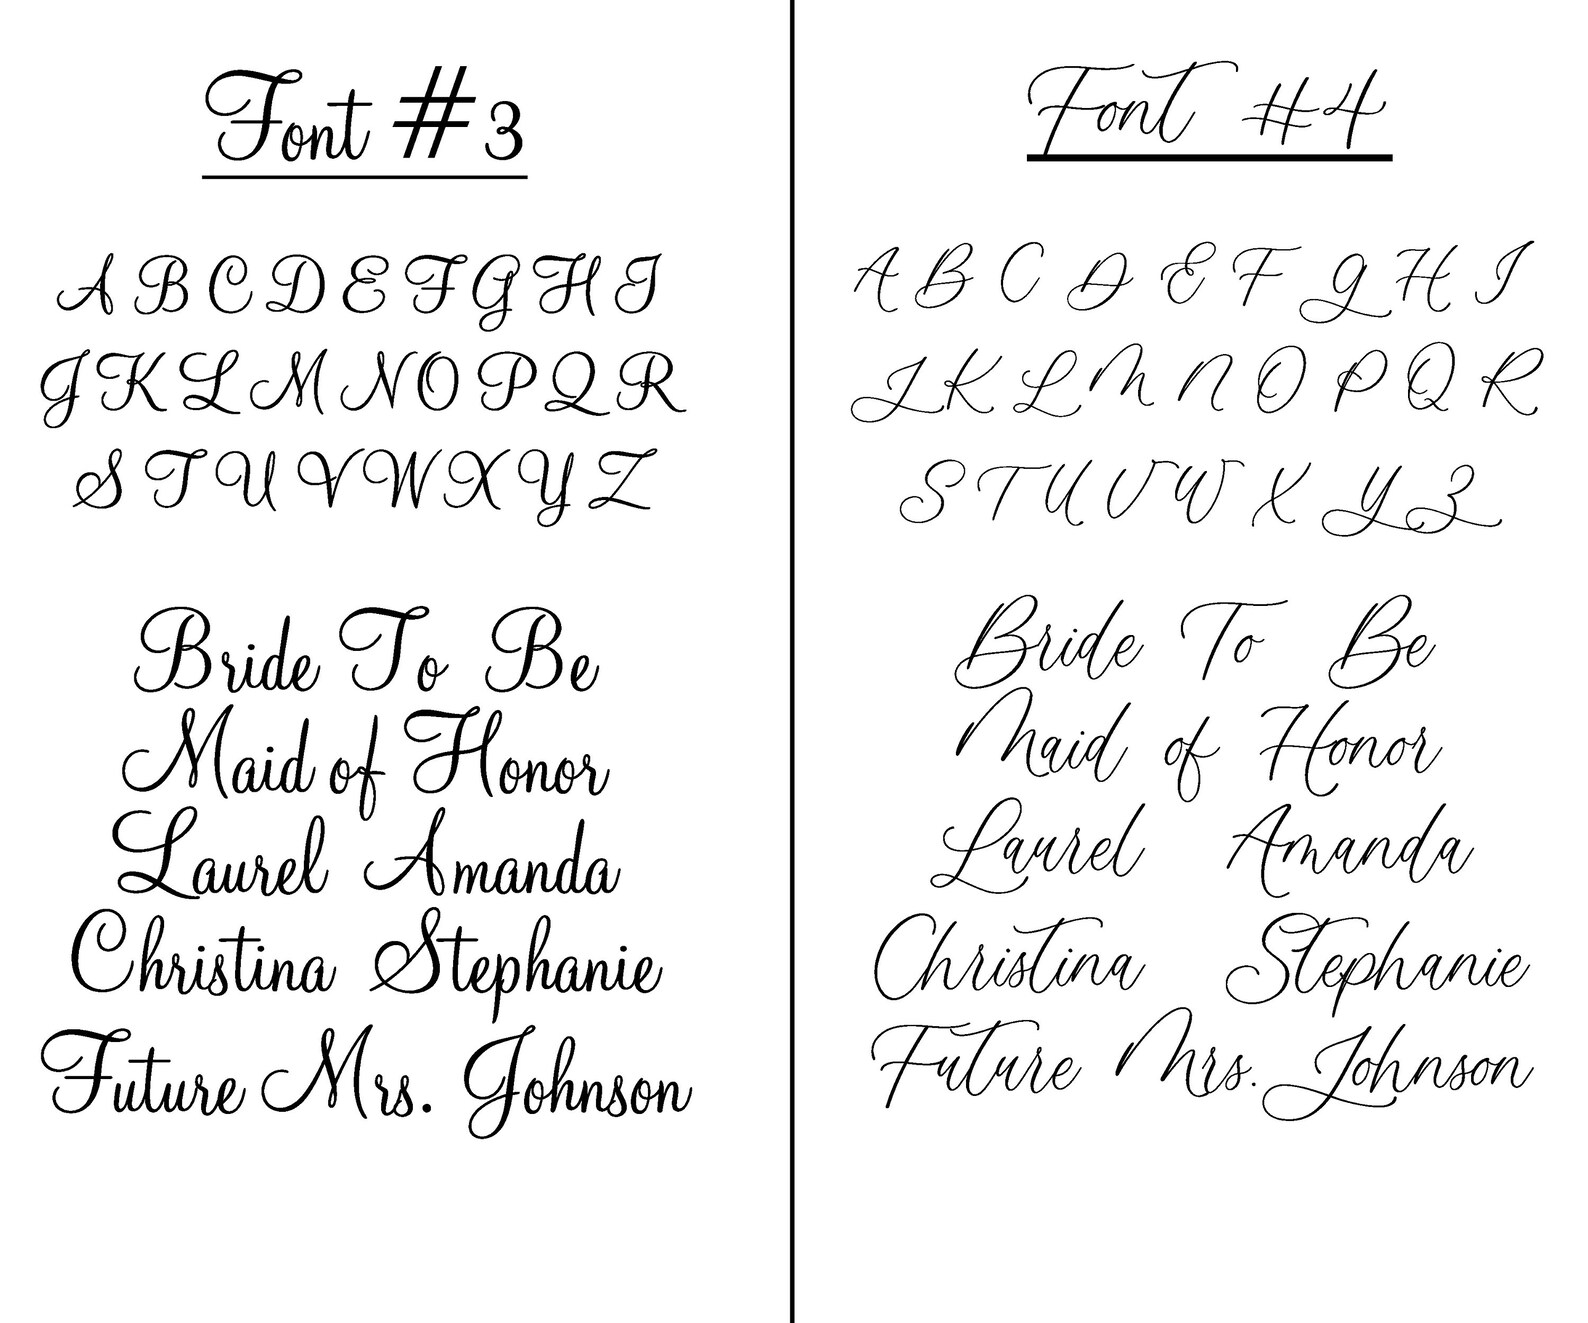 Font #3
A B C D E F G H I
J K L M N O P Q R
S T U V W X Y Z
Bride To Be
Maid of Honor
Laurel Amanda
Christina Stephanie
Future Mrs. Johnson
Font #4
A B C D E F G H I
J K L M N O P Q R
S T U V W X Y Z
Bride To Be
Maid of Honor
Laurel Amanda
Christina Stephanie
Future Mrs. Johnson